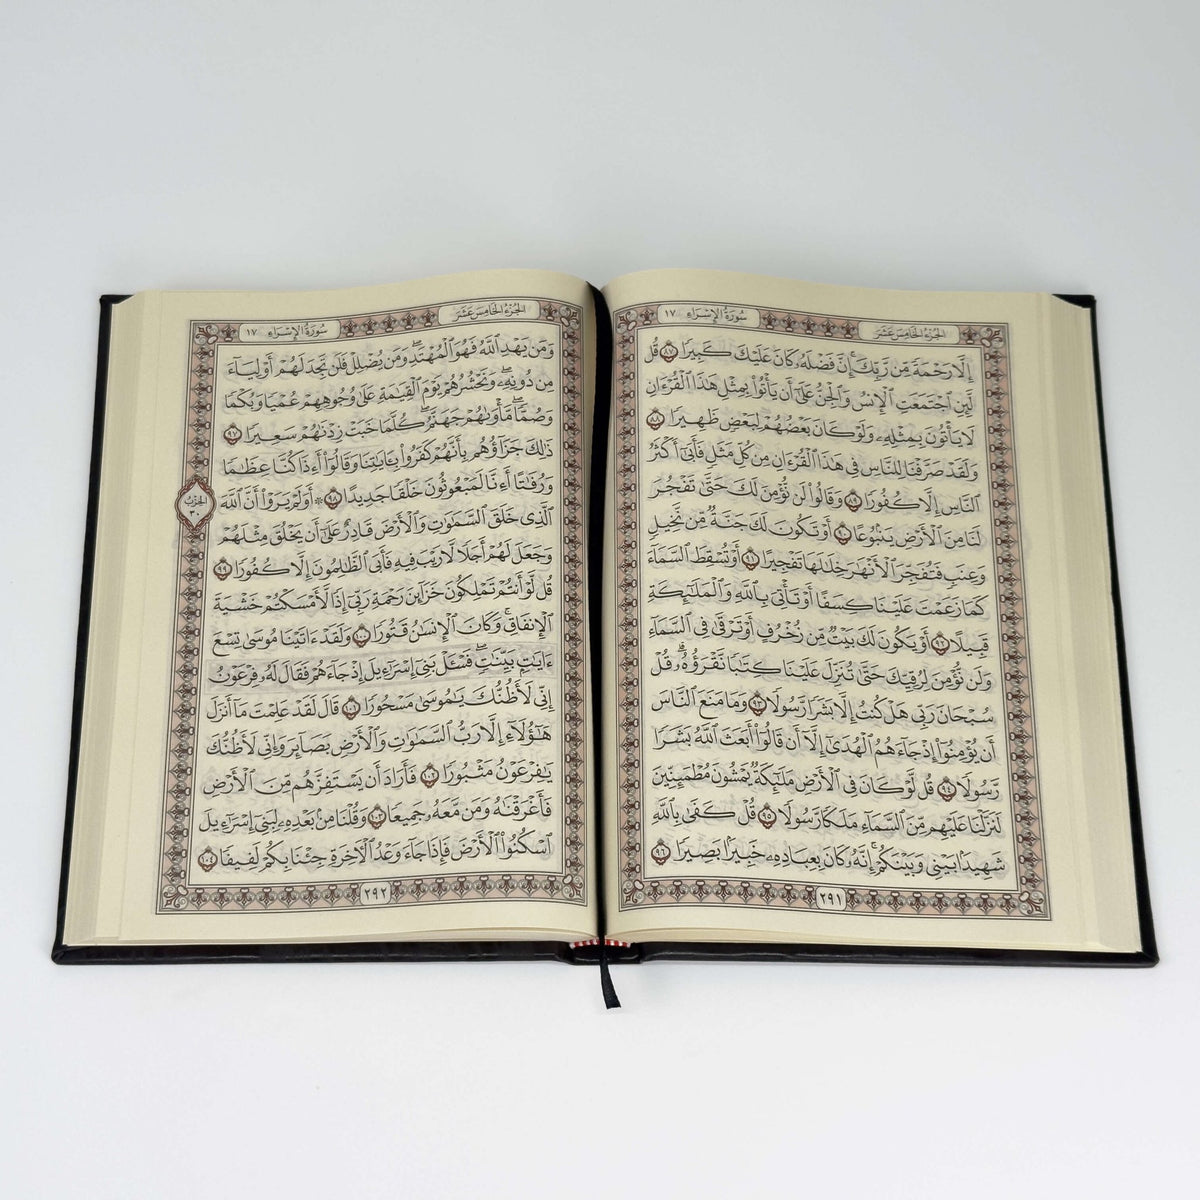 سُورَةُ الإِسْرَاءِ ١٧
الجُزْءُ الخَامِسَ عَشَرَ
إِلَّا رَحْمَةً مِّن رَّبِّكَ ۚ إِنَّ فَضْلَهُۥ كَانَ عَلَيْكَ كَبِيرًا ٨٧ قُل
لَّئِنِ ٱجْتَمَعَتِ ٱلْإِنسُ وَٱلْجِنُّ عَلَىٰٓ أَن يَأْتُوا۟ بِمِثْلِ هَٰذَا ٱلْقُرْءَانِ
لَا يَأْتُونَ بِمِثْلِهِۦ وَلَوْ كَانَ بَعْضُهُمْ لِبَعْضٍ ظَهِيرًا ٨٨
وَلَقَدْ صَرَّفْنَا لِلنَّاسِ فِى هَٰذَا ٱلْقُرْءَانِ مِن كُلِّ مَثَلٍ فَأَبَىٰٓ أَكْثَرُ
ٱلنَّاسِ إِلَّا كُفُورًا ٨٩ وَقَالُوا۟ لَن نُّؤْمِنَ لَكَ حَتَّىٰ تَفْجُرَ
لَنَا مِنَ ٱلْأَرْضِ يَنۢبُوعًا ٩٠ أَوْ تَكُونَ لَكَ جَنَّةٌ مِّن نَّخِيلٍ
وَعِنَبٍ فَتُفَجِّرَ ٱلْأَنْهَٰرَ خِلَٰلَهَا تَفْجِيرًا ٩١ أَوْ تُسْقِطَ ٱلسَّمَآءَ
كَمَا زَعَمْتَ عَلَيْنَا كِسَفًا أَوْ تَأْتِىَ بِٱللَّهِ وَٱلْمَلَٰٓئِكَةِ
قَبِيلًا ٩٢ أَوْ يَكُونَ لَكَ بَيْتٌ مِّن زُخْرُفٍ أَوْ تَرْقَىٰ فِى ٱلسَّمَآءِ
وَلَن نُّؤْمِنَ لِرُقِيِّكَ حَتَّىٰ تُنَزِّلَ عَلَيْنَا كِتَٰبًا نَّقْرَؤُهُۥ ۗ قُلْ
سُبْحَانَ رَبِّى هَلْ كُنتُ إِلَّا بَشَرًا رَّسُولًا ٩٣ وَمَا مَنَعَ ٱلنَّاسَ
أَن يُؤْمِنُوٓا۟ إِذْ جَآءَهُمُ ٱلْهُدَىٰٓ إِلَّآ أَن قَالُوٓا۟ أَبَعَثَ ٱللَّهُ بَشَرًا
رَّسُولًا ٩٤ قُل لَّوْ كَانَ فِى ٱلْأَرْضِ مَلَٰٓئِكَةٌ يَمْشُونَ مُطْمَئِنِّينَ
لَنَزَّلْنَا عَلَيْهِم مِّنَ ٱلسَّمَآءِ مَلَكًا رَّسُولًا ٩٥ قُلْ كَفَىٰ بِٱللَّهِ
شَهِيدًۢا بَيْنِى وَبَيْنَكُمْ ۚ إِنَّهُۥ كَانَ بِعِبَادِهِۦ خَبِيرًۢا بَصِيرًا ٩٦
٢٩١
الجُزْءُ الخَامِسَ عَشَرَ
سُورَةُ الإِسْرَاءِ ١٧
وَمَن يَهْدِ ٱللَّهُ فَهُوَ ٱلْمُهْتَدِ ۖ وَمَن يُضْلِلْ فَلَن تَجِدَ لَهُمْ أَوْلِيَآءَ
مِن دُونِهِۦ ۖ وَنَحْشُرُهُمْ يَوْمَ ٱلْقِيَٰمَةِ عَلَىٰ وُجُوهِهِمْ عُمْيًا وَبُكْمًا
وَصُمًّا ۖ مَّأْوَىٰهُمْ جَهَنَّمُ ۖ كُلَّمَا خَبَتْ زِدْنَٰهُمْ سَعِيرًا ٩٧
ذَٰلِكَ جَزَآؤُهُم بِأَنَّهُمْ كَفَرُوا۟ بِـَٔايَٰتِنَا وَقَالُوٓا۟ أَءِذَا كُنَّا عِظَٰمًا
وَرُفَٰتًا أَءِنَّا لَمَبْعُوثُونَ خَلْقًا جَدِيدًا ٩٨ ۞ أَوَلَمْ يَرَوْا۟ أَنَّ ٱللَّهَ
ٱلَّذِى خَلَقَ ٱلسَّمَٰوَٰتِ وَٱلْأَرْضَ قَادِرٌ عَلَىٰٓ أَن يَخْلُقَ مِثْلَهُمْ
وَجَعَلَ لَهُمْ أَجَلًا لَّا رَيْبَ فِيهِ فَأَبَى ٱلظَّٰلِمُونَ إِلَّا كُفُورًا ٩٩
قُل لَّوْ أَنتُمْ تَمْلِكُونَ خَزَآئِنَ رَحْمَةِ رَبِّىٓ إِذًا لَّأَمْسَكْتُمْ خَشْيَةَ
ٱلْإِنفَاقِ ۚ وَكَانَ ٱلْإِنسَٰنُ قَتُورًا ١٠٠ وَلَقَدْ ءَاتَيْنَا مُوسَىٰ تِسْعَ
ءَايَٰتٍۭ بَيِّنَٰتٍ ۖ فَسْـَٔلْ بَنِىٓ إِسْرَٰٓءِيلَ إِذْ جَآءَهُمْ فَقَالَ لَهُۥ فِرْعَوْنُ
إِنِّى لَأَظُنُّكَ يَٰمُوسَىٰ مَسْحُورًا ١٠١ قَالَ لَقَدْ عَلِمْتَ مَآ أَنزَلَ
هَٰٓؤُلَآءِ إِلَّا رَبُّ ٱلسَّمَٰوَٰتِ وَٱلْأَرْضِ بَصَآئِرَ وَإِنِّى لَأَظُنُّكَ
يَٰفِرْعَوْنُ مَثْبُورًا ١٠٢ فَأَرَادَ أَن يَسْتَفِزَّهُم مِّنَ ٱلْأَرْضِ
فَأَغْرَقْنَٰهُ وَمَن مَّعَهُۥ جَمِيعًا ١٠٣ وَقُلْنَا مِنۢ بَعْدِهِۦ لِبَنِىٓ إِسْرَٰٓءِيلَ
ٱسْكُنُوا۟ ٱلْأَرْضَ فَإِذَا جَآءَ وَعْدُ ٱلْءَاخِرَةِ جِئْنَا بِكُمْ لَفِيفًا ١٠٤
الحِزْبُ
٣٠
٢٩٢